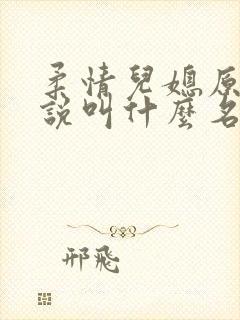 柔情兒媳原
說叫什麼名
邢飛